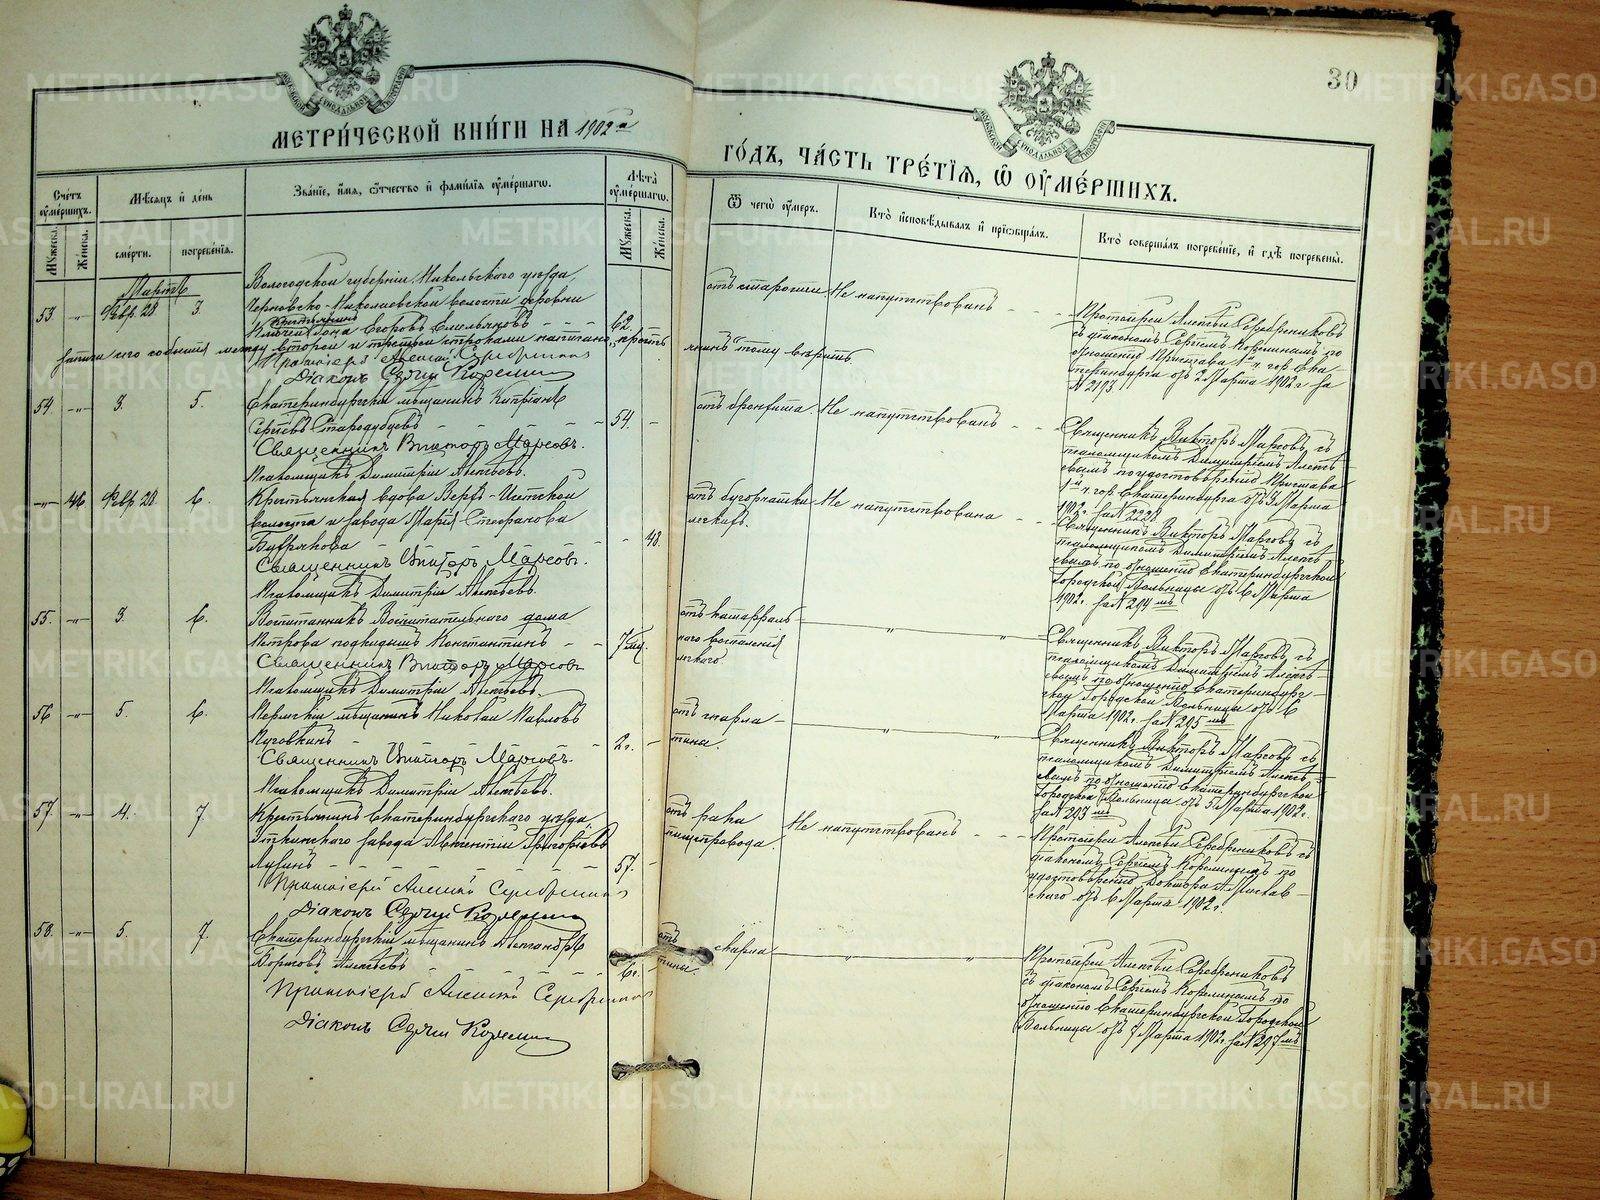 30
МЕТРИ́ЧЕСКОЙ КНИ́ГИ НА 1902й
ГО́ДЪ, ЧА́СТЬ ТРЕ́ТІѦ, Ѡ҆ ОУ҆МЕ́РШИХЪ.
Счетъ оумершихъ.
Мѣсяцъ и день
Зва́нїе, и҆́мѧ, ѻ҆́тчество и҆ фами́лїѧ оу҆ме́ршагѡ.
Лѣта оумершагѡ.
Ѿ чегѡ̀ оу҆́меръ.
Кто̀ и҆сповѣ́дывалъ и҆ прїѡбща́лъ.
Кто̀ соверша́лъ погребе́нїе, и҆ гдѣ̀ погребены̀.
Мужеска.
Женска.
смерти.
погребенїѧ.
Мужеска.
Женска.
Мартъ
53. -"- Февр. 28 3.
Вологодской губерніи Никольскаго уѣзда
Черновско-Николаевской волости деревни
крестьянинъ
Егоровъ Емельяновъ 62.
записи сего событія между второй и третьей строками написано „крестьянинъ“ тому вѣрить.
Протоіерей Алексій Серебренниковъ
Діаконъ Сергій Корелинъ
отъ старости
Не напутствованъ
Протоіерей Алексѣй Серебрениковъ
съ діакономъ Сергіемъ Корелинымъ по
отношенію Пристава 1й ч. гор. Ека-
теринбурга отъ 2 Марта 1902 г за
№ 2193.
54. -"- 3. 5.
Екатеринбургскій мѣщанинъ Кипріанъ
Сергѣевъ Стародубцевъ 54. -
Священникъ Викторъ Марсовъ.
Псаломщикъ Димитрій Алексѣевъ.
отъ бронхита
Не напутствованъ
Священникъ Викторъ Марсовъ съ
псаломщикомъ Димитріемъ Алексѣ-
евымъ по удостовѣренію Пристава
1й ч. гор. Екатеринбурга отъ 3 Марта
1902 г. за № 2228
-"- 46 Февр. 28. 6.
Крестьянская вдова Верхъ-Исетской
волости и завода Марія Стефанова
- 48.
Священникъ Викторъ Марсовъ.
Псаломщикъ Димитрій Алексѣевъ.
отъ бугорчатки
легкихъ.
Не напутствована
Священникъ Викторъ Марсовъ съ
псаломщикомъ Димитріемъ Алексѣ-
евымъ по отношенію Екатеринбургской
Городской Больницы отъ 6 Марта
1902 г. за № 294мъ
55. -"- 3. 6.
Воспитанникъ Воспитательнаго дома
Петрова подкидышъ Константинъ 7 мѣс.
Священникъ Викторъ Марсовъ
Псаломщикъ Димитрій Алексѣевъ.
отъ катарраль-
наго воспаленія
легкаго.
" "
Священникъ Викторъ Марсовъ съ
псаломщикомъ Димитріемъ Алексѣ-
евымъ по отношенію Екатеринбург-
ской Городской Больницы отъ 6
Марта 1902 г. за № 295мъ
56 -"- 5. 6.
мѣщанинъ Николай Павловъ
Пуговкинъ 2 г. -
Священникъ Викторъ Марсовъ.
Псаломщикъ Димитрій Алексѣевъ.
отъ скарла-
тины.
" "
Священникъ Викторъ Марсовъ съ
псаломщикомъ Димитріемъ Алексѣ-
евымъ по отношенію Екатеринбургской
Городской Больницы отъ 5 Марта 1902 г.
за № 293мъ
57. -"- 4. 7
Крестьянинъ Екатеринбургскаго уѣзда
Уткинскаго завода Авксентій Григорьевъ
Лузинъ 57. -
Протоіерей Алексій Серебренниковъ
Діаконъ Сергій Корелинъ
отъ рака
пищепровода.
Не напутствованъ
Протоіерей Алексѣй Серебрениковъ съ
діакономъ Сергіемъ Корелинымъ по
удостовѣренію Доктора
отъ 6 Марта 1902 г.
58. -"- 5. 7.
Екатеринбургскій мѣщанинъ Александръ
Борисовъ Алексѣевъ 6 г. -
Протоіерей Алексій Серебренниковъ
Діаконъ Сергій Корелинъ
отъ скарла-
тины.
" "
Протоіерей Алексѣй Серебрениковъ
съ діакономъ Сергіемъ Корелинымъ по
отношенію Екатеринбургской Городской
Больницы отъ 7 Марта 1902 г. за № 297мъ
METRIKI.GASO-URAL.RU